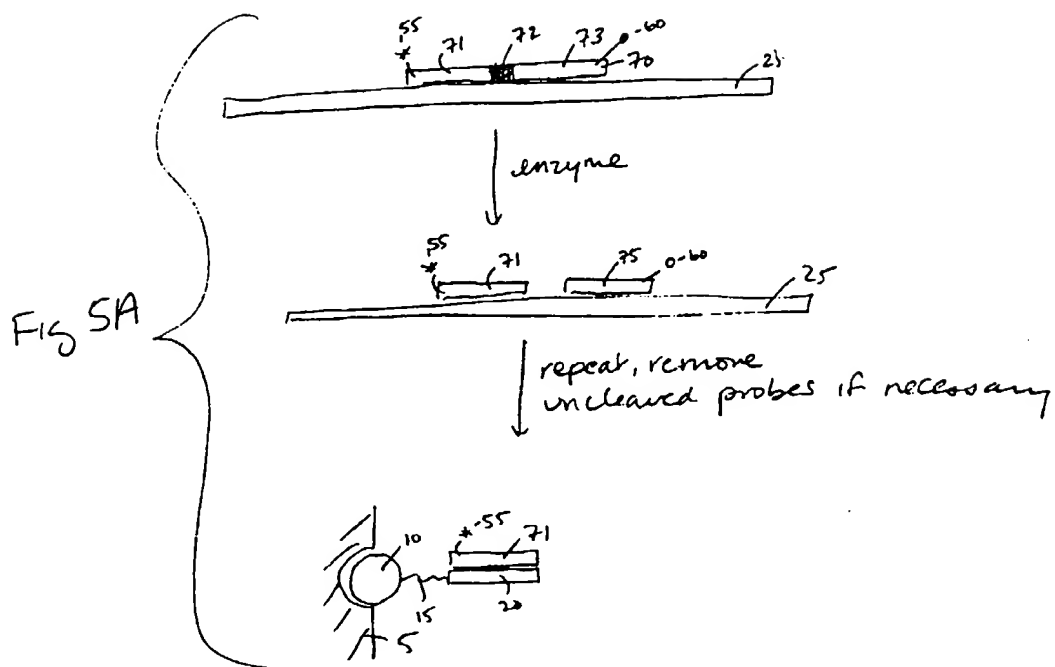 55
*
71
72
73
60
70
25
enzyme
55
*
71
75
60
25
Fig 5A
repeat, remove
uncleaved probes if necessary
10
*-55
71
15
20
5